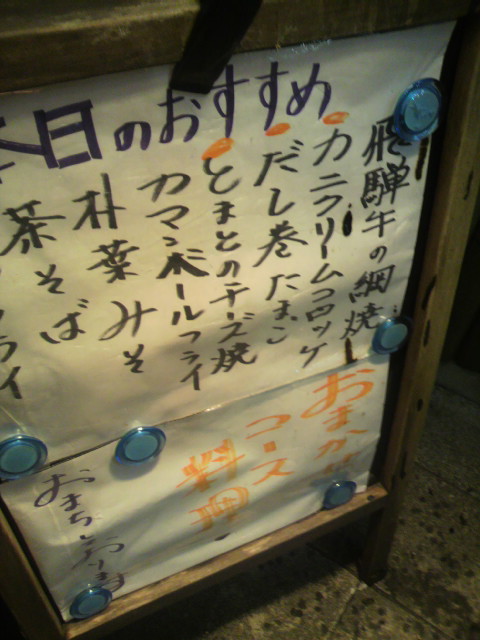 本日のおすすめ
飛騨牛の網焼
カニクリームコロッケ
だし巻たまご
とまとのチーズ焼
カマンボールフライ
朴葉みそ
茶そば
フライ
おまかせ
コース
料理
おまちしております